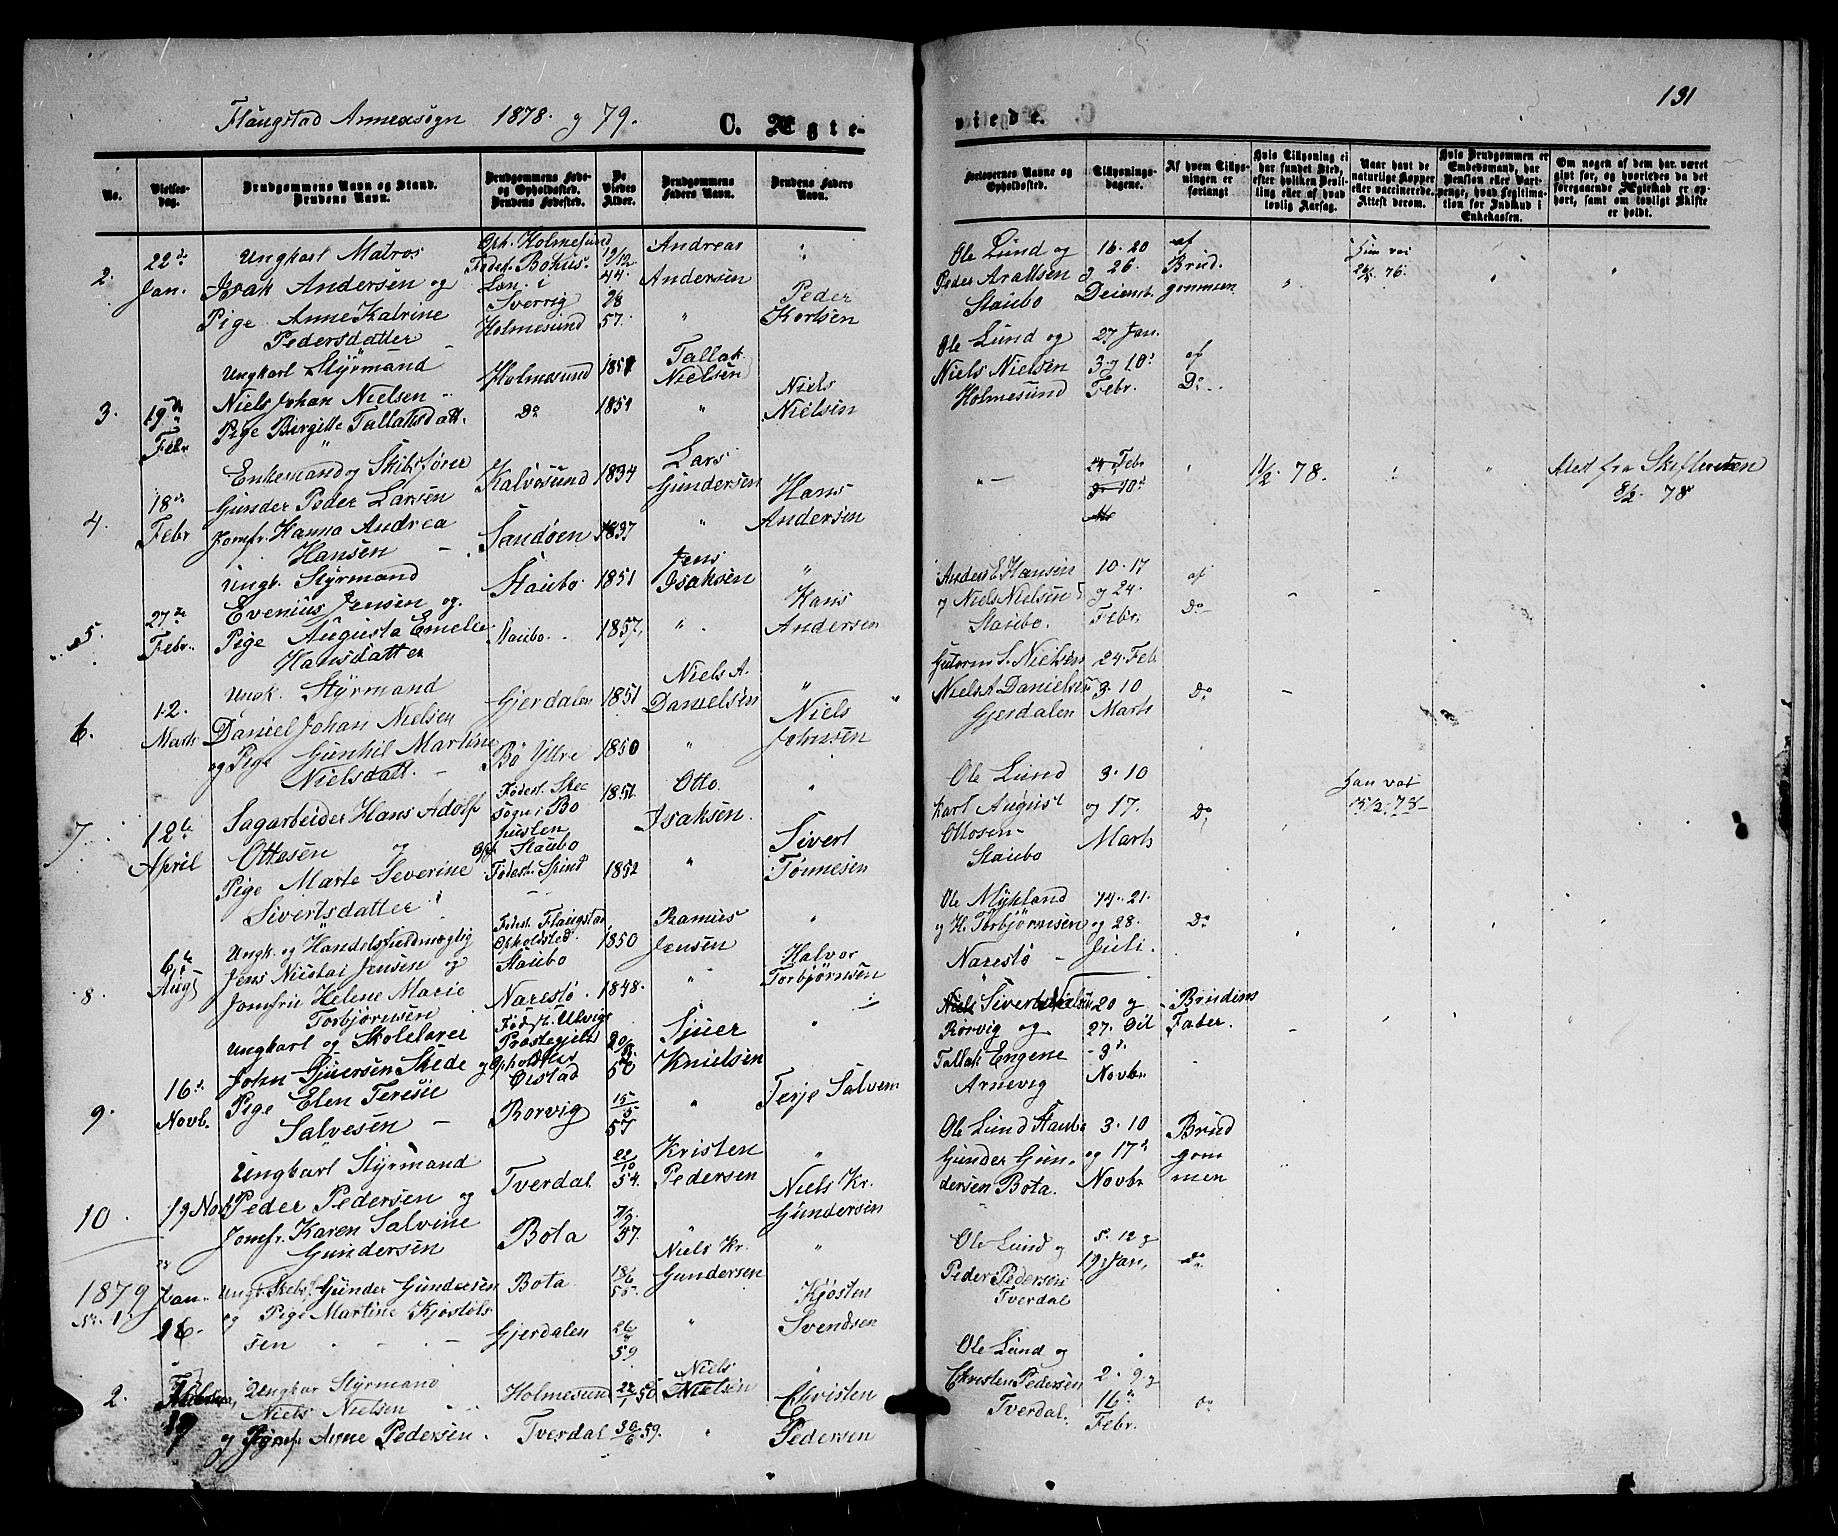 Flaugstad Annexsogn 1878 og 79.
C. Ægte-
viede.
131
No.
Vielses-
dag.
Brudgommens Navn og Stand.
Brudens Navn.
Brudgommens Føde-
og Opholdssted.
Brudens Fødested.
De
Viedes
Alder.
Brudgommens
Faders Navn.
Brudens Faders
Navn.
Forlovernes Navne og
Opholdssted.
Tillysnings-
dagene.
Af hvem Tillys-
ningen er
forlangt.
Hvis Tillysning ei
har fundet Sted,
efter hvilken Bevil-
ling eller af hvad
lovlig Aarsag.
Naar havt de
naturlige Kopper
eller vaccinerede.
Attest derom.
Hvis Brudgommen er
Embedsmand, har
Pension eller Vart-
penge, hvad Legitima-
tion for Indskud i
Enkekassen.
Om nogen af dem har været
gift før, og hvorledes da det
foregaaende Ægteskab er op-
hørt, samt om lovligt Skifte
er holdt.
2.
22de
Jan.
Ungkarl Matros
Isak Andersen og
Pige Anne Katrine
Pedersdatter
Oph. Holmesund
Fødef. Bohus-
Län i
Sverrig
Holmesund
19/12
44
57.
Andreas
Andersen
Peder
Kortsen
Ole Lund og
Peder Araltsen
Staubo
16. 20
g 26.
Deienst.
af
Brud-
gommen
Hun vai
76.
3.
19de
Febr
Ungkarl Styrmand
Niels Johan Nielsen
Pige Birgitte Tallaksdatt.
Holmesund
Do
1851
1854
Tallak
Nielsen
Niels
Nielsen
Ole Lund og
Niels Nielsen
Holmesund
27 Jan.
3 g 10d
Febr.
af
Do
4.
18de
Febr
Enkemand og Skibsfører
Gunder Peder Larsen
Jomfr. Hanna Andrea
Hansen
Kalvøsund
Sandøen
1834
1837
Lars
Gundersen
Hans
Andersen
Febr
10d
11/2. 78.
Atest fra Skifteretten
8/2. 78
5.
27de
Febr.
Ungk. Styrmand
Evenius Jensen og
Pige Augusta Emelie
Hansdatter
Staubo
Staubo
1851
1857
Jens
Isaksen
Hans
Andersen
Anders E Hansen
og Niels Nielsen
Staubo.
10. 17
g 24.
Febr.
af
Do
6.
12.
Marts
Ungk. Styrmand
Daniel Johan Nielsen
og Pige Gunhil Martine
Nielsdatt.
Gjerdalen
Bø Yttre
1851
1850
Niels A.
Danielsen
Niels
Johnsen
Gutorm S. Nielsen
Niels A Danielsen
Gjerdalen
24. Feb
3. 10
Marts
Do
7.
12te
April
Sagarbeider Hans Adolf
Ottesen og
Pige Marte Severine
Sivertsdatter
Fødest. Skee
sogn i Bo
huslen
Oph. Staubo
Fødest. Spind
1851
1852
Otto
Isaksen
Sivert
Tønnesen
Ole Lund
Karl August
Ottosen
Staubo
3. 10
og 17.
Marts
Do
Han vai
8.
6te
Aug
Ungk. og Handelsfuldmægtig
Jens Nicolai Jensen og
Jomfru Helene Marie
Torbjørnsen
Fødest. Flaugstad
Opholdsted
Staubo
Narestø
1850
1848.
Ramus
Jensen
Halvor
Torbjørnsen
Ole Mykland
og H. Torbjørnsen
Narestø
14. 21.
og 28.
Juli.
Do
9.
16d
Novb.
Ungkarl og Skolelærer
John Sjursen Skede
Pige Elen Terese
Salvesen
Fød i Ulvigs
Præstegjeld
og Opholdstes
Øestad
Borvig
50
15/5
57
Sjuer
Knielsen
Terje Salvesen
Rørvig og
Tallak Engene
Arnevig
20 og
27. Oct
3d
Novbr
Brudens
Fader.
10.
19 Nov
Ungkarl Styrmand
Peder Pedersen og
Jomfr. Karen Salvine
Gundersen
Tverdal
Bota
22/10
54.
57.
Kristen
Pedersen
Niels Kr.
Gundersen
Ole Lund Staubo
Gunder Gun-
dersen Bota.
3. 10
og 17d
Novbr
Brud
gom
men
1879
No. 1
Jan.
16.
Ungk. Skibsf. Gunder Gundersen
og Pige Martine Kjøstøls
sen
Bota
Gjerdalen
18/6
55
59
Niels Kr.
Gundersen
Kjøsten
Svendsen
Ole Lund og
Peder Pedersen
Tverdal
5. 12 g
19 Jan,
do
2.
19
Ungkar Styrmand
Niels Nielsen
og Jomfr. Anne Pedersen
Holmesund
Tverdal
22/1 50
30/6 59.
Niels
Nielsen
Christen
Pedersen
Ole Lund og
Christen Pedersen
Tverdal.
2. 9 g
16d
Febr.
do